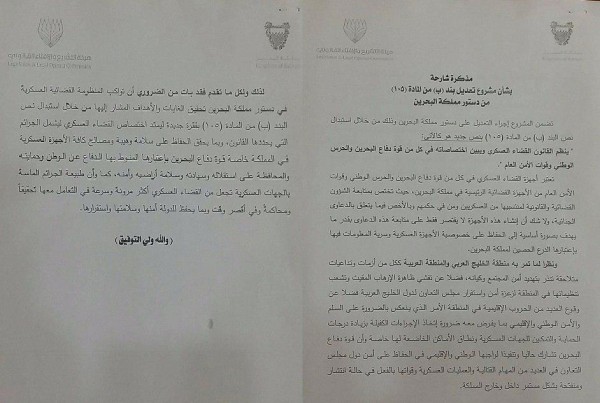 هيئة التشريع والإفتاء القانوني
مذكرة شارحة
بشأن مشروع تعديل بند (ب) من المادة (١٠٥)
من دستور مملكة البحرين
تضمن المشروع إجراء التعديل على دستور مملكة البحرين وذلك من خلال استبدال
نص البند (ب) من المادة (١٠٥) بنص جديد هو كالآتي:
" ينظم القانون القضاء العسكري ويبين اختصاصاته في كل من قوة دفاع البحرين والحرس
الوطني وقوات الأمن العام ".
تعتبر أجهزة القضاء العسكري في كل من قوة دفاع البحرين والحرس الوطني وقوات
الأمن العام من الأجهزة القضائية الرئيسية في مملكة البحرين، حيث تختص بمتابعة الشؤون
القضائية والقانونية لمنتسبيها من العسكريين ومن في حكمهم وبالأخص فيما يتعلق بالدعاوى
الجنائية، ولا شك أن إنشاء هذه الأجهزة لا يقتصر فقط على متابعة هذه الدعاوى بقدر ما
يهدف بصورة أساسية إلى الحفاظ على خصوصية الأجهزة العسكرية وسرية المعلومات فيها
بإعتبارها الدرع الحصين لمملكة البحرين.
ونظرا لما تمر به منطقة الخليج العربي والمنطقة العربية ككل من أزمات وتداعيات
متلاحقة تنذر بتهديد أمن المجتمع وكيانه، فضلا عن تفشي ظاهرة الإرهاب المقيت وتشعب
تنظيماتها في المنطقة لزعزة أمن واستقرار مجلس التعاون لدول الخليج العربية فضلا عن
وقوع العديد من الحروب الإقليمية في المنطقة الأمر الذي ينعكس بالضرورة على السلم
والأمن الوطني والإقليمي بما يفرض معه ضرورة إتخاذ الإجراءات الكفيلة بزيادة درجات
الحماية والتمكين للجهات العسكرية ونطاق الأماكن الخاضعة لها خاصة وأن قوة دفاع
البحرين تشارك حاليا وتنفيذا لواجبها الوطني والإقليمي في الحفاظ على أمن دول مجلس
التعاون في العديد من المهام القتالية والعمليات العسكرية وقواتها بالفعل في حالة انتشار
ومنفتحة بشكل مستمر داخل وخارج المملكة.
هيئة التشريع والإفتاء القانوني
Legislation & Legal Opinion Commission
لذلك ولكل ما تقدم فقد بات من الضروري أن تواكب المنظومة القضائية العسكرية
في دستور مملكة البحرين تحقيق الغايات والأهداف المشار إليها من خلال استبدال نص
البند (ب) من المادة (١٠٥) بفقرة جديدة ليمتد اختصاص القضاء العسكري ليشمل الجرائم
التي يحددها القانون، بما يحقق الحفاظ على سلامة وهيبة ومصالح كافة الأجهزة العسكرية
في المملكة خاصة قوة دفاع البحرين بإعتبارها المنوط بها الدفاع عن الوطن وحمايته
والمحافظة على استقلاله وسيادته وسلامة أراضيه وأمنه، كما وأن طبيعة الجرائم الماسة
بالجهات العسكرية تجعل من القضاء العسكري أكثر مرونة وسرعة في التعامل معها تحقيقاً
ومحاكمةً وفي أقصر وقت وبما يحفظ للدولة أمنها وسلامتها واستقرارها.
(والله ولي التوفيق)